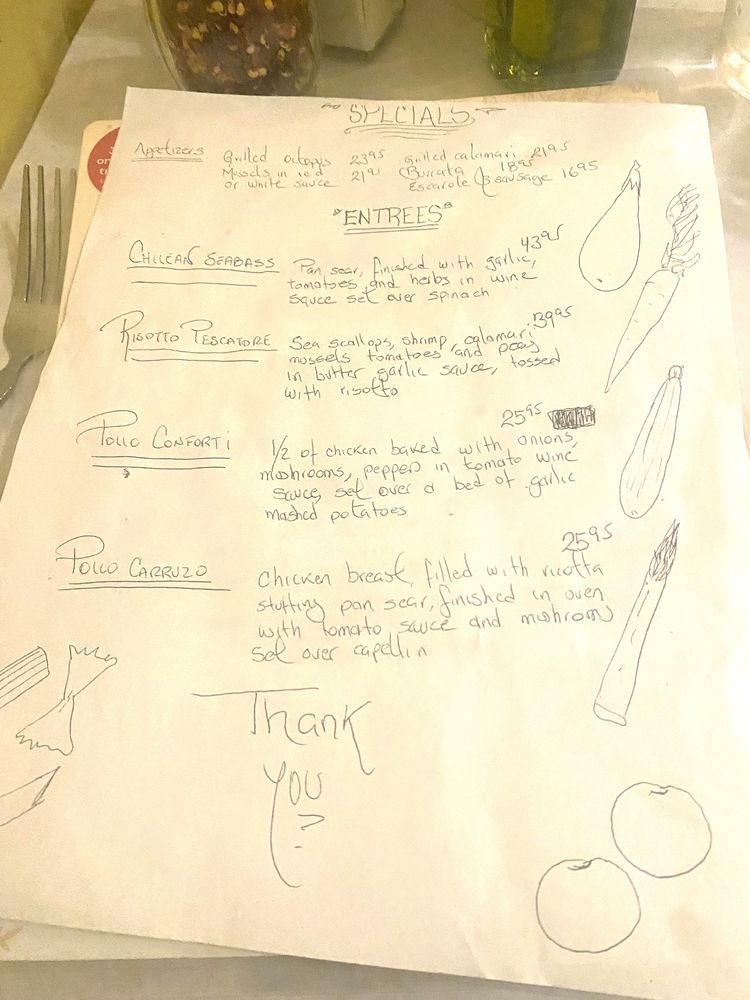 SPECIALS
Appetizers Grilled octopus 23 95 Grilled calamari 21 95
Mussels in red 21 95 Burrata 18 95
or white sauce Escarole & sausage 16 95
"ENTREES"
43 95
CHILEAN SEABASS Pan sear, finished with garlic,
tomatoes and herbs in wine
sauce set over spinach
39 95
RISOTTO PESCATORE Sea scallops, shrimp, calamari
mussels tomatoes and peas
in butter garlic sauce, tossed
with risotto
25 95
POLLO CONFORTI 1/2 of chicken baked with onions,
mushrooms, peppers in tomato wine
sauce, set over a bed of garlic
mashed potatoes
25 95
POLLO CARRUZO Chicken breast, filled with ricotta
stuffing pan sear, finished in oven
with tomato sauce and mushrooms
set over capellin
Thank
you